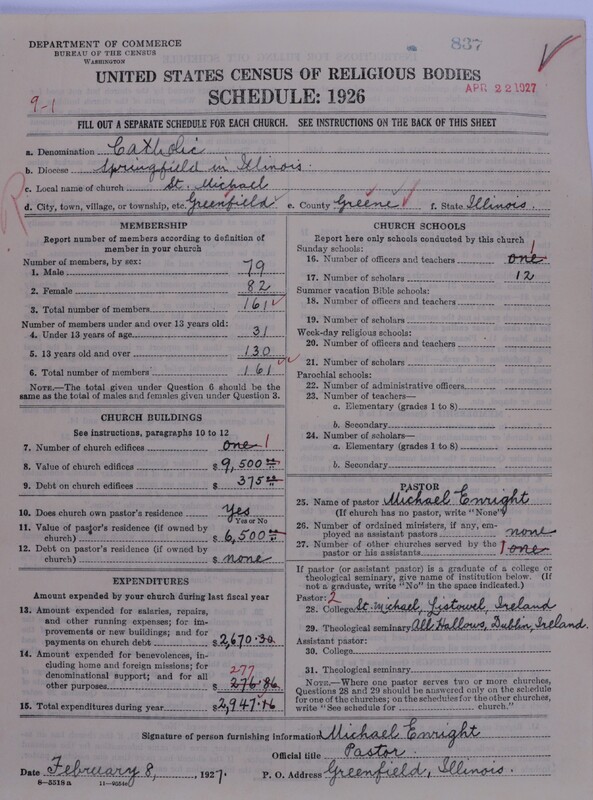 837
DEPARTMENT OF COMMERCE
BUREAU OF THE CENSUS
WASHINGTON
UNITED STATES CENSUS OF RELIGIOUS BODIES
APR 22 1927
9-1
SCHEDULE: 1926
FILL OUT A SEPARATE SCHEDULE FOR EACH CHURCH. SEE INSTRUCTIONS ON THE BACK OF THIS SHEET
a. Denomination Catholic
b. Diocese Springfield in Illinois.
c. Local name of church St. Michael
d. City, town, village, or township, etc. Greenfield e. County Greene f. State Illinois.
MEMBERSHIP
Report number of members according to definition of
member in your church
Number of members, by sex:
1. Male 79
2. Female 82
3. Total number of members 161
Number of members under and over 13 years old:
4. Under 13 years of age 31
5. 13 years old and over 130
6. Total number of members 161
NOTE.—The total given under Question 6 should be
same as the total of males and females given under Question 3.
CHURCH BUILDINGS
See instructions, paragraphs 10 to 12
7. Number of church edifices one 1
8. Value of church edifices $ 9,500 00
9. Debt on church edifices $ 375 00
10. Does church own pastor's residence? Yes
Yes or No
11. Value of pastor's residence (if owned by
church) $ 6,500 00
12. Debt on pastor's residence (if owned by
church) $ none
EXPENDITURES
Amount expended by your church during last fiscal year
13. Amount expended for salaries, repairs,
and other running expenses; for im-
provements or new buildings; and for
payments on church debt $ 2,670.30
14. Amount expended for benevolences, in-
cluding home and foreign missions; for
denominational support; and for all
277
other purposes $ 276.86
15. Total expenditures during year $ 2,947.16
CHURCH SCHOOLS
Report here only schools conducted by this church
Sunday schools:
1
16. Number of officers and teachers one
17. Number of scholars 12
Summer vacation Bible schools:
18. Number of officers and teachers
19. Number of scholars
Week-day religious schools:
20. Number of officers and teachers
21. Number of scholars
Parochial schools:
22. Number of administrative officers
23. Number of teachers—
a. Elementary (grades 1 to 8)
b. Secondary
24. Number of scholars—
a. Elementary (grades 1 to 8)
b. Secondary
PASTOR
25. Name of pastor Michael Enright
(If church has no pastor, write "None")
26. Number of ordained ministers, if any, em-
ployed as assistant pastors none
27. Number of other churches served by the
pastor or his assistants 1 one
If pastor (or assistant pastor) is a graduate of a college or
theological seminary, give name of institution below. (If
not a graduate, write "No" in the space indicated.)
Pastor: 2
28. College St. Michael, Listowel, Ireland
29. Theological seminary All Hallows, Dublin, Ireland.
Assistant pastor:
30. College
31. Theological seminary
NOTE.—Where one pastor serves two or more churches,
Questions 28 and 29 should be answered only on the schedule
for one of the churches; on the schedules for the other churches,
write "See schedule for church."
Signature of person furnishing information Michael Enright
Official title Pastor.
Date February 8, 1927. P. O. Address Greenfield, Illinois.
8-5518a